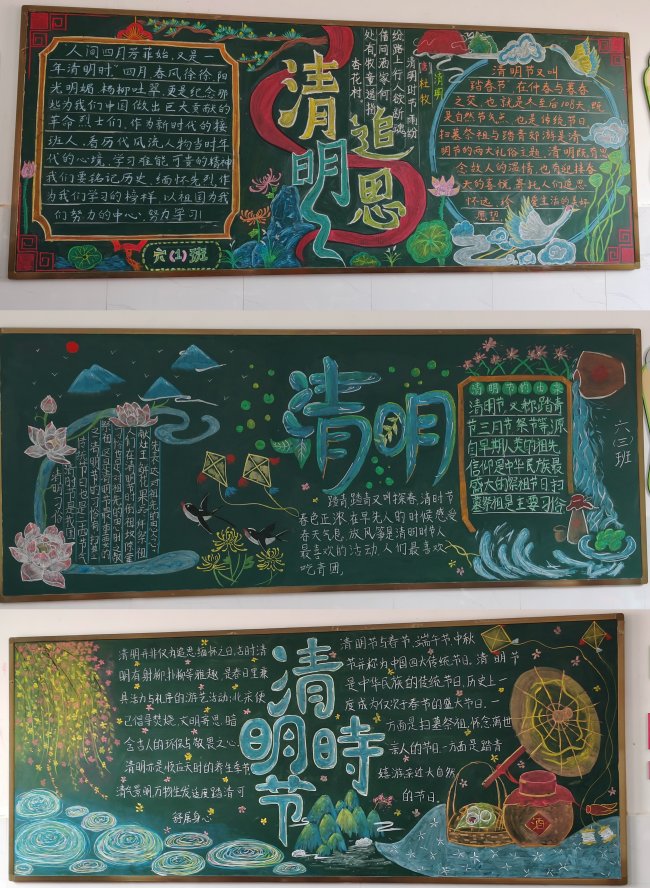 "人间四月芳菲始,又是一
年清明时。"四月春风徐徐,阳
光明媚,杨柳吐翠,更是纪念那
些为我们中国做出巨大贡献的
革命烈士们。作为新时代的接
班人,看历代风流人物当时年
代的心境,学习难能可贵的精神
我们要铭记历史,缅怀先烈,作
为我们学习的榜样,以祖国为我
们努力的中心,努力学习!
六(1)班
清明
追思
清明
唐 杜牧
清明时节雨纷
纷,路上行人欲断魂。
借问酒家何
处有,牧童遥指
杏花村。
清明节又叫
踏春节,在仲春与暮春
之交,也就是冬至后108天,既
是自然节气点,也是传统节日
扫墓祭祖与踏青郊游是清
明节的两大礼俗主题,清明既有
念故人的温情,也有迎接春
天的喜悦,寄托人们追思
怀远、珍 生活的美好
愿望。
清明
踏青:踏青又叫探春,清时节
春色正浓,在早先人的时候感受
春天气息,放风筝是清明时节人
最喜欢的活动,人们最喜欢
吃青团。
清明节的由来
清明节,又称踏青
节三月节祭节等,源
自早期人类的祖先
信仰,是中华民族最
盛大的祭祖节日,扫
墓祭祖是主要习俗
六(三)班
清明并非仅为追思,缅怀之日,古时清
明有射柳,扑柳等雅趣,是春日里兼
具活力与礼序的游艺活动,北宋便
已倡导禁烧,文明寄思,暗
含古人的环保与敬畏之心
清明亦是顺应天时的养生季节
清气景明万物生发适度踏清可
舒展身心
清明時节
清明节与春节、端午节、中秋
节并称为中国四大传统节日。清明节
是中华民族的传统节日,历史上一
度成为仅次于春节的盛大节日,一
方面是扫墓祭祖,怀念离世
亲人的节日,一方面是踏青
嬉游亲近大自然
的节日。
酒